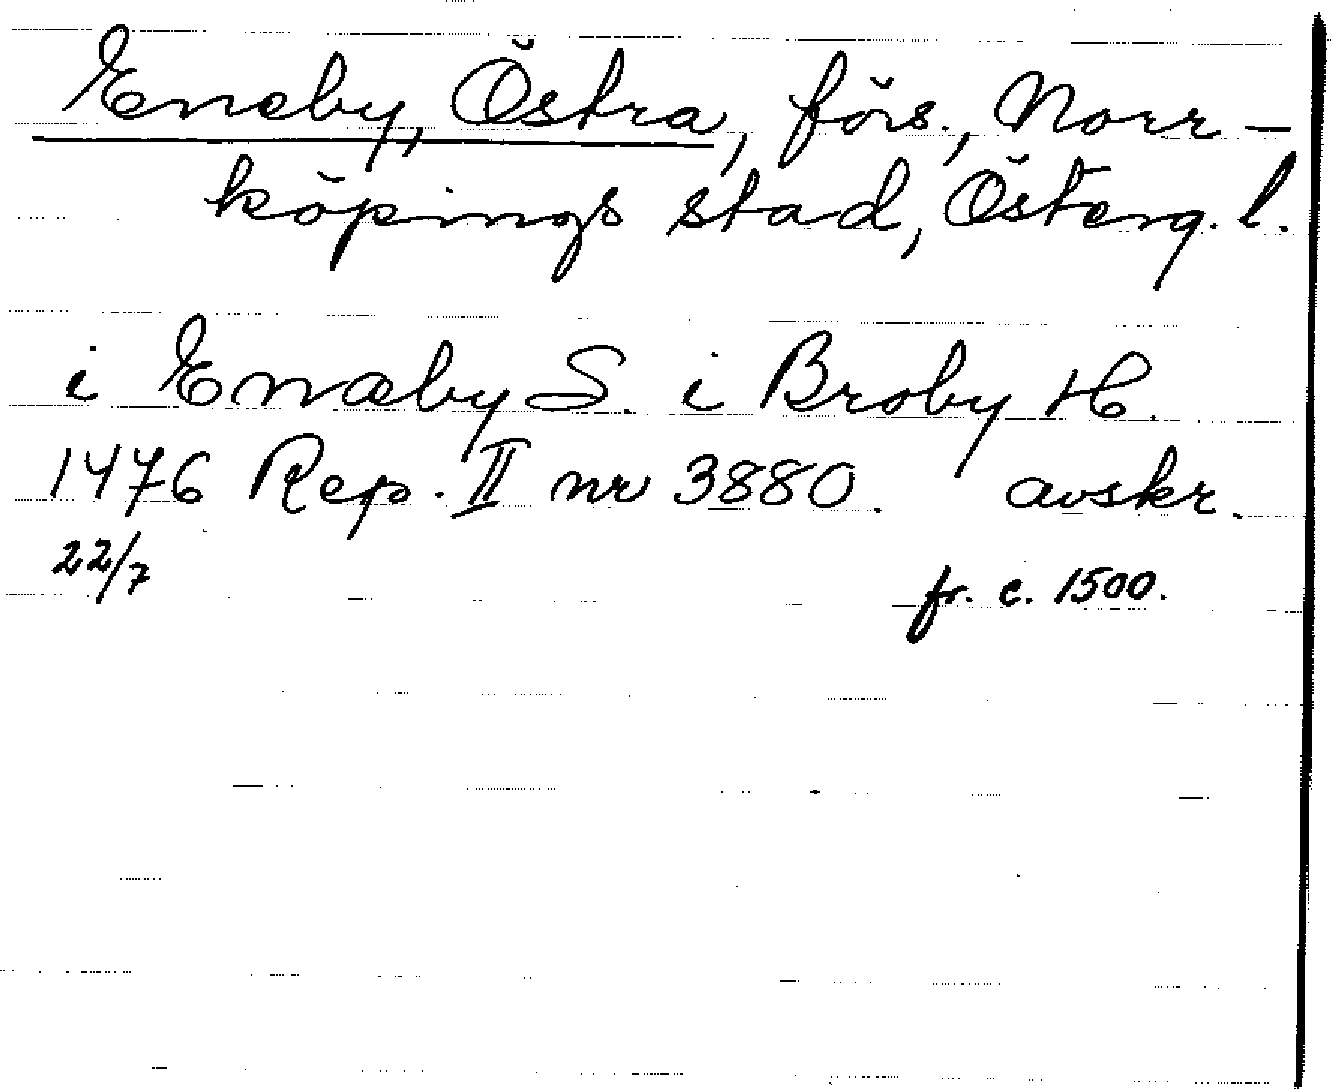 Eneby, Östra, förs., Norr-
köpings stad, Österg. l.
i Enæby S. i Broby H.
1476 Rep. II nr 3880. avskr.
22/7 fr. c. 1500.